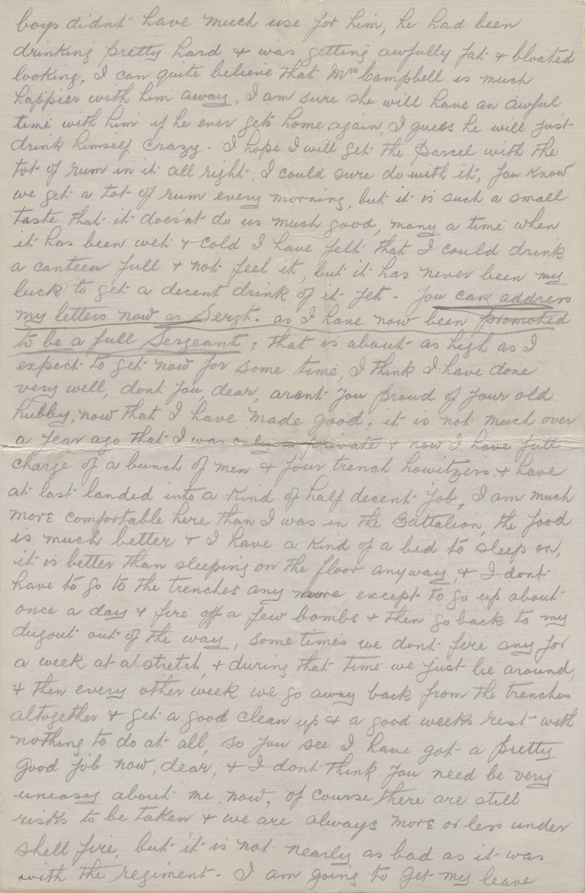 boys didnt have much use for him, he had been
drinking pretty hard & was getting awfully fat & bloated
looking, I can quite believe that Mrs Campbell is much
happier with him away, I am sure she will have an awful
time with him if he ever gets home again, I guess he will just
drink himself crazy. I hope I will get the parcel with the
tot of rum in it all right, I could sure do with it, you know
we get a tot of rum every morning, but it is such a small
taste that it doesnt do us much good, many a time when
it has been wet & cold I have felt that I could drink
a canteen full & not feel it, but it has never been my
luck to get a decent drink of it yet. You can address
my letters now as Sergt. as I have now been promoted
to be a full Sergeant, that is about as high as I
expect to get now for some time, I think I have done
very well, dont you, dear, arent you proud of your old
hubby, now that I have made good, it is not much over
a year ago that I was only a private & now I have full
charge of a bunch of men & four trench howitzers, & have
at last landed into a kind of half decent job, I am much
more comfortable here than I was in the Battalion, the food
is much better & I have a kind of a bed to sleep on,
it is better than sleeping on the floor anyway, & I dont
have to go to the trenches any more, except to go up about
once a day & fire off a few bombs & then go back to my
dugout out of the way, sometimes we dont fire any for
a week at a stretch, & during that time we just lie around,
& then every other week we go away back from the trenches
altogether & get a good clean up & a good weeks rest with
nothing to do at all, so you see I have got a pretty
good job now, dear, & I dont think you need be very
uneasy about me now, of course there are still
risks to be taken & we are always more or less under
shell fire, but it is not nearly as bad as it was
with the regiment. I am going to get my leave